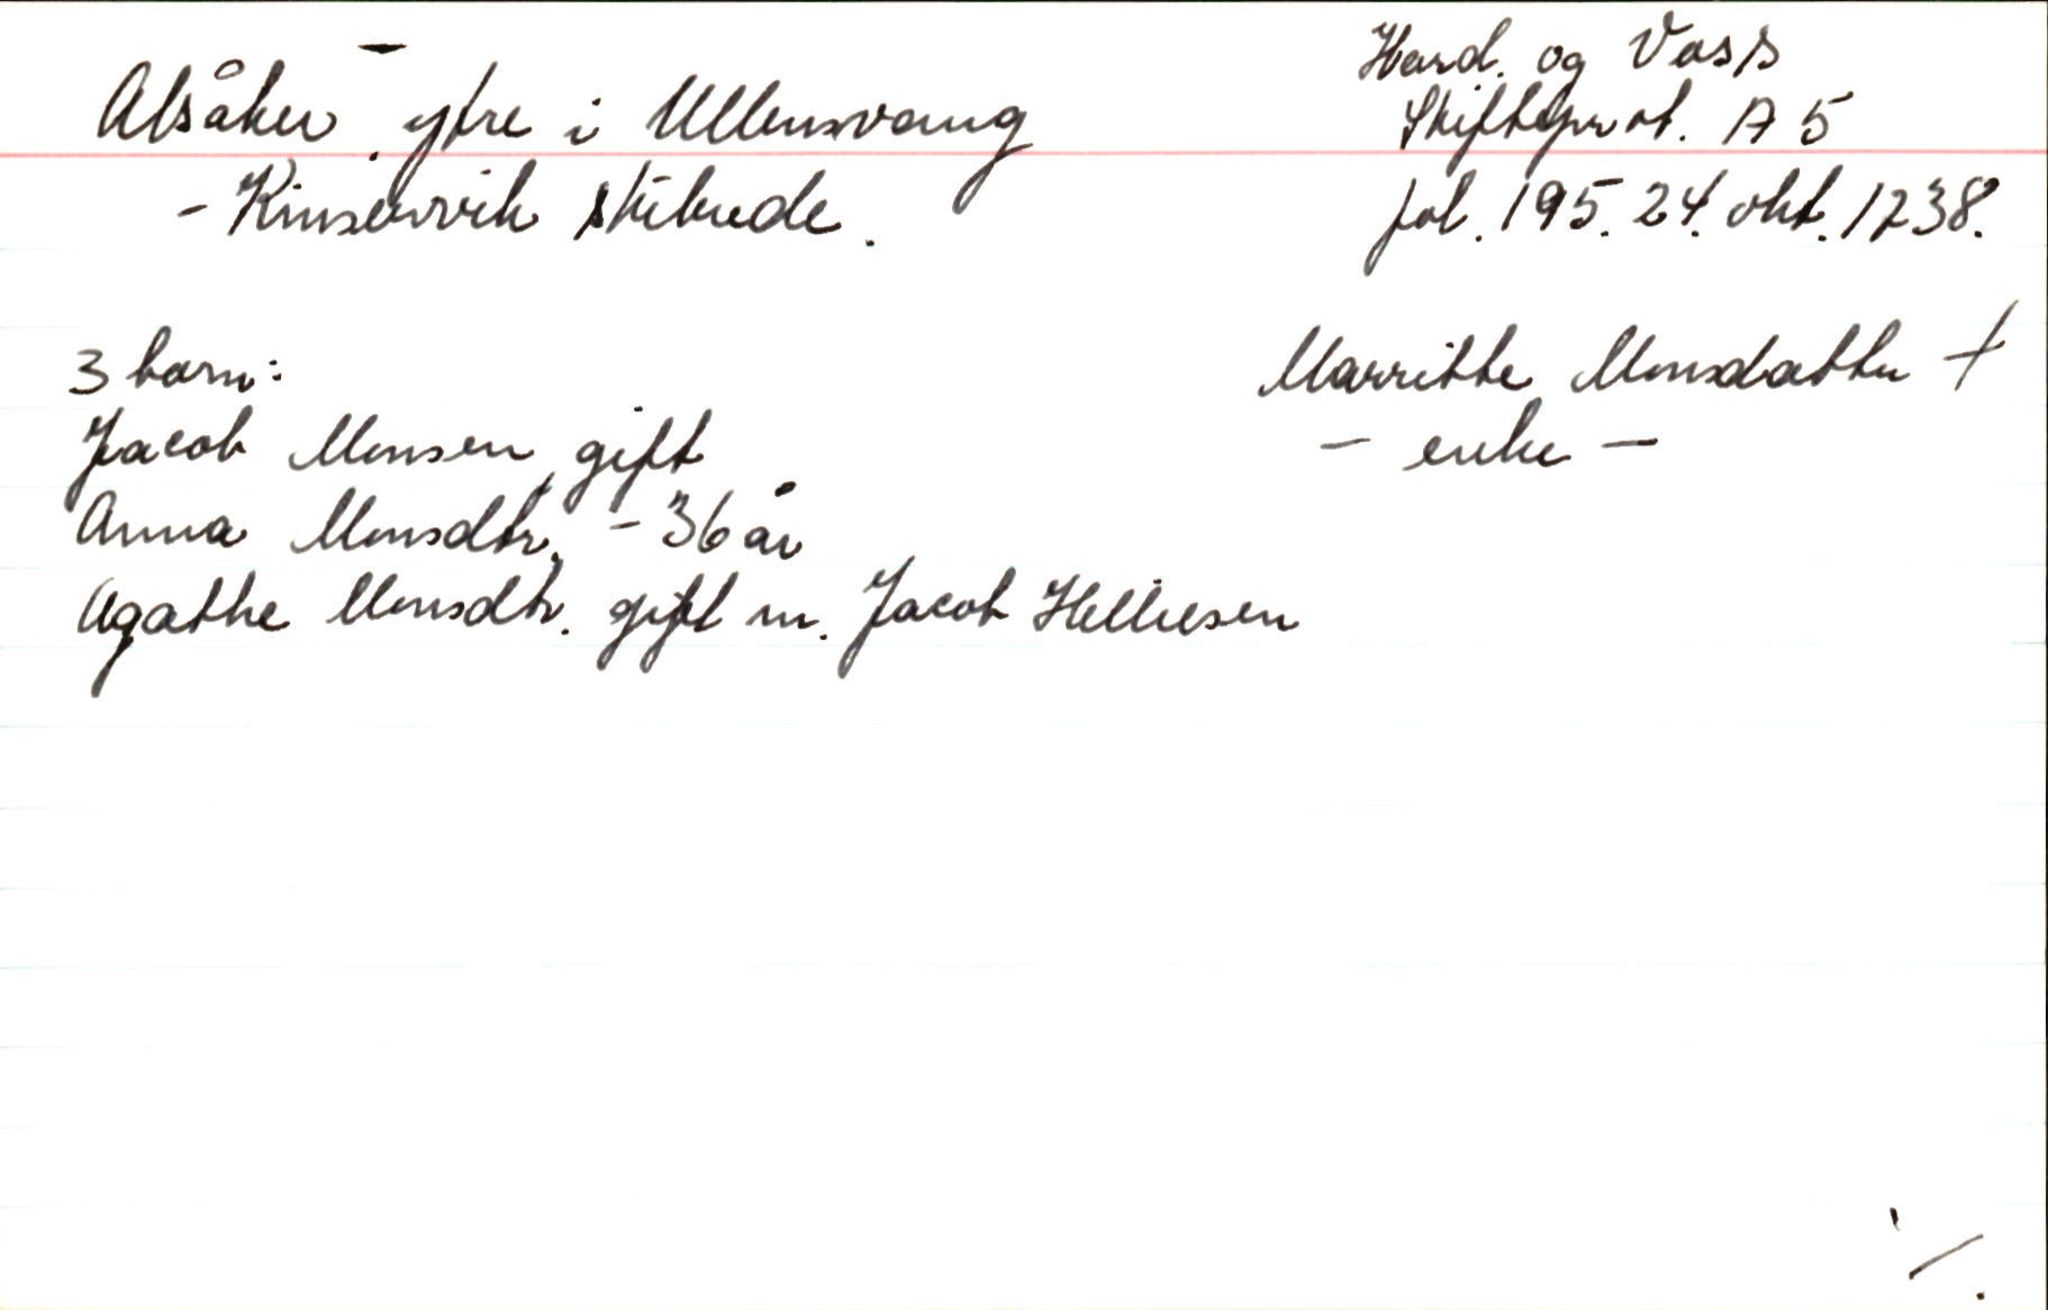 Alsåker ytre i Ullensvang
- Kinservik skibrede.
Hard. og Voss
Skifteprot. A 5
fol. 195. 24. okt. 1738.
3 barn:
Jacob Monsen gift
Anna Monsdtr. - 36 år
Agathe Monsdtr. gift m. Jacob Helliesen
Marritte Monsdatter +
- enke -